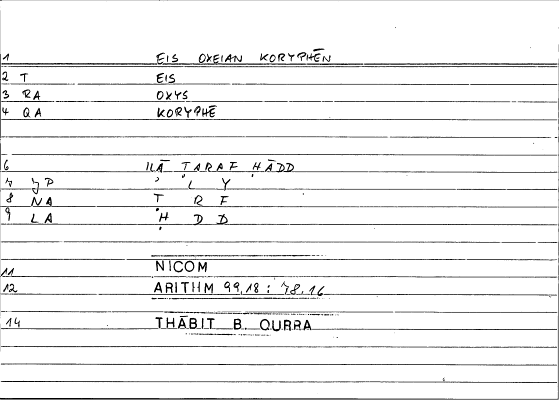 1 EIS OXEIAN KORYPHĒN
2 T EIS
3 RA OXYS
4 QA KORYPHĒ
6 ILĀ ṬARAF ḤĀDD
7 JP ʾ L Y
8 NA Ṭ R F
9 LA Ḥ D D
11 NICOM
12 ARITHM 99,18 : 78.16
14 THĀBIT B. QURRA